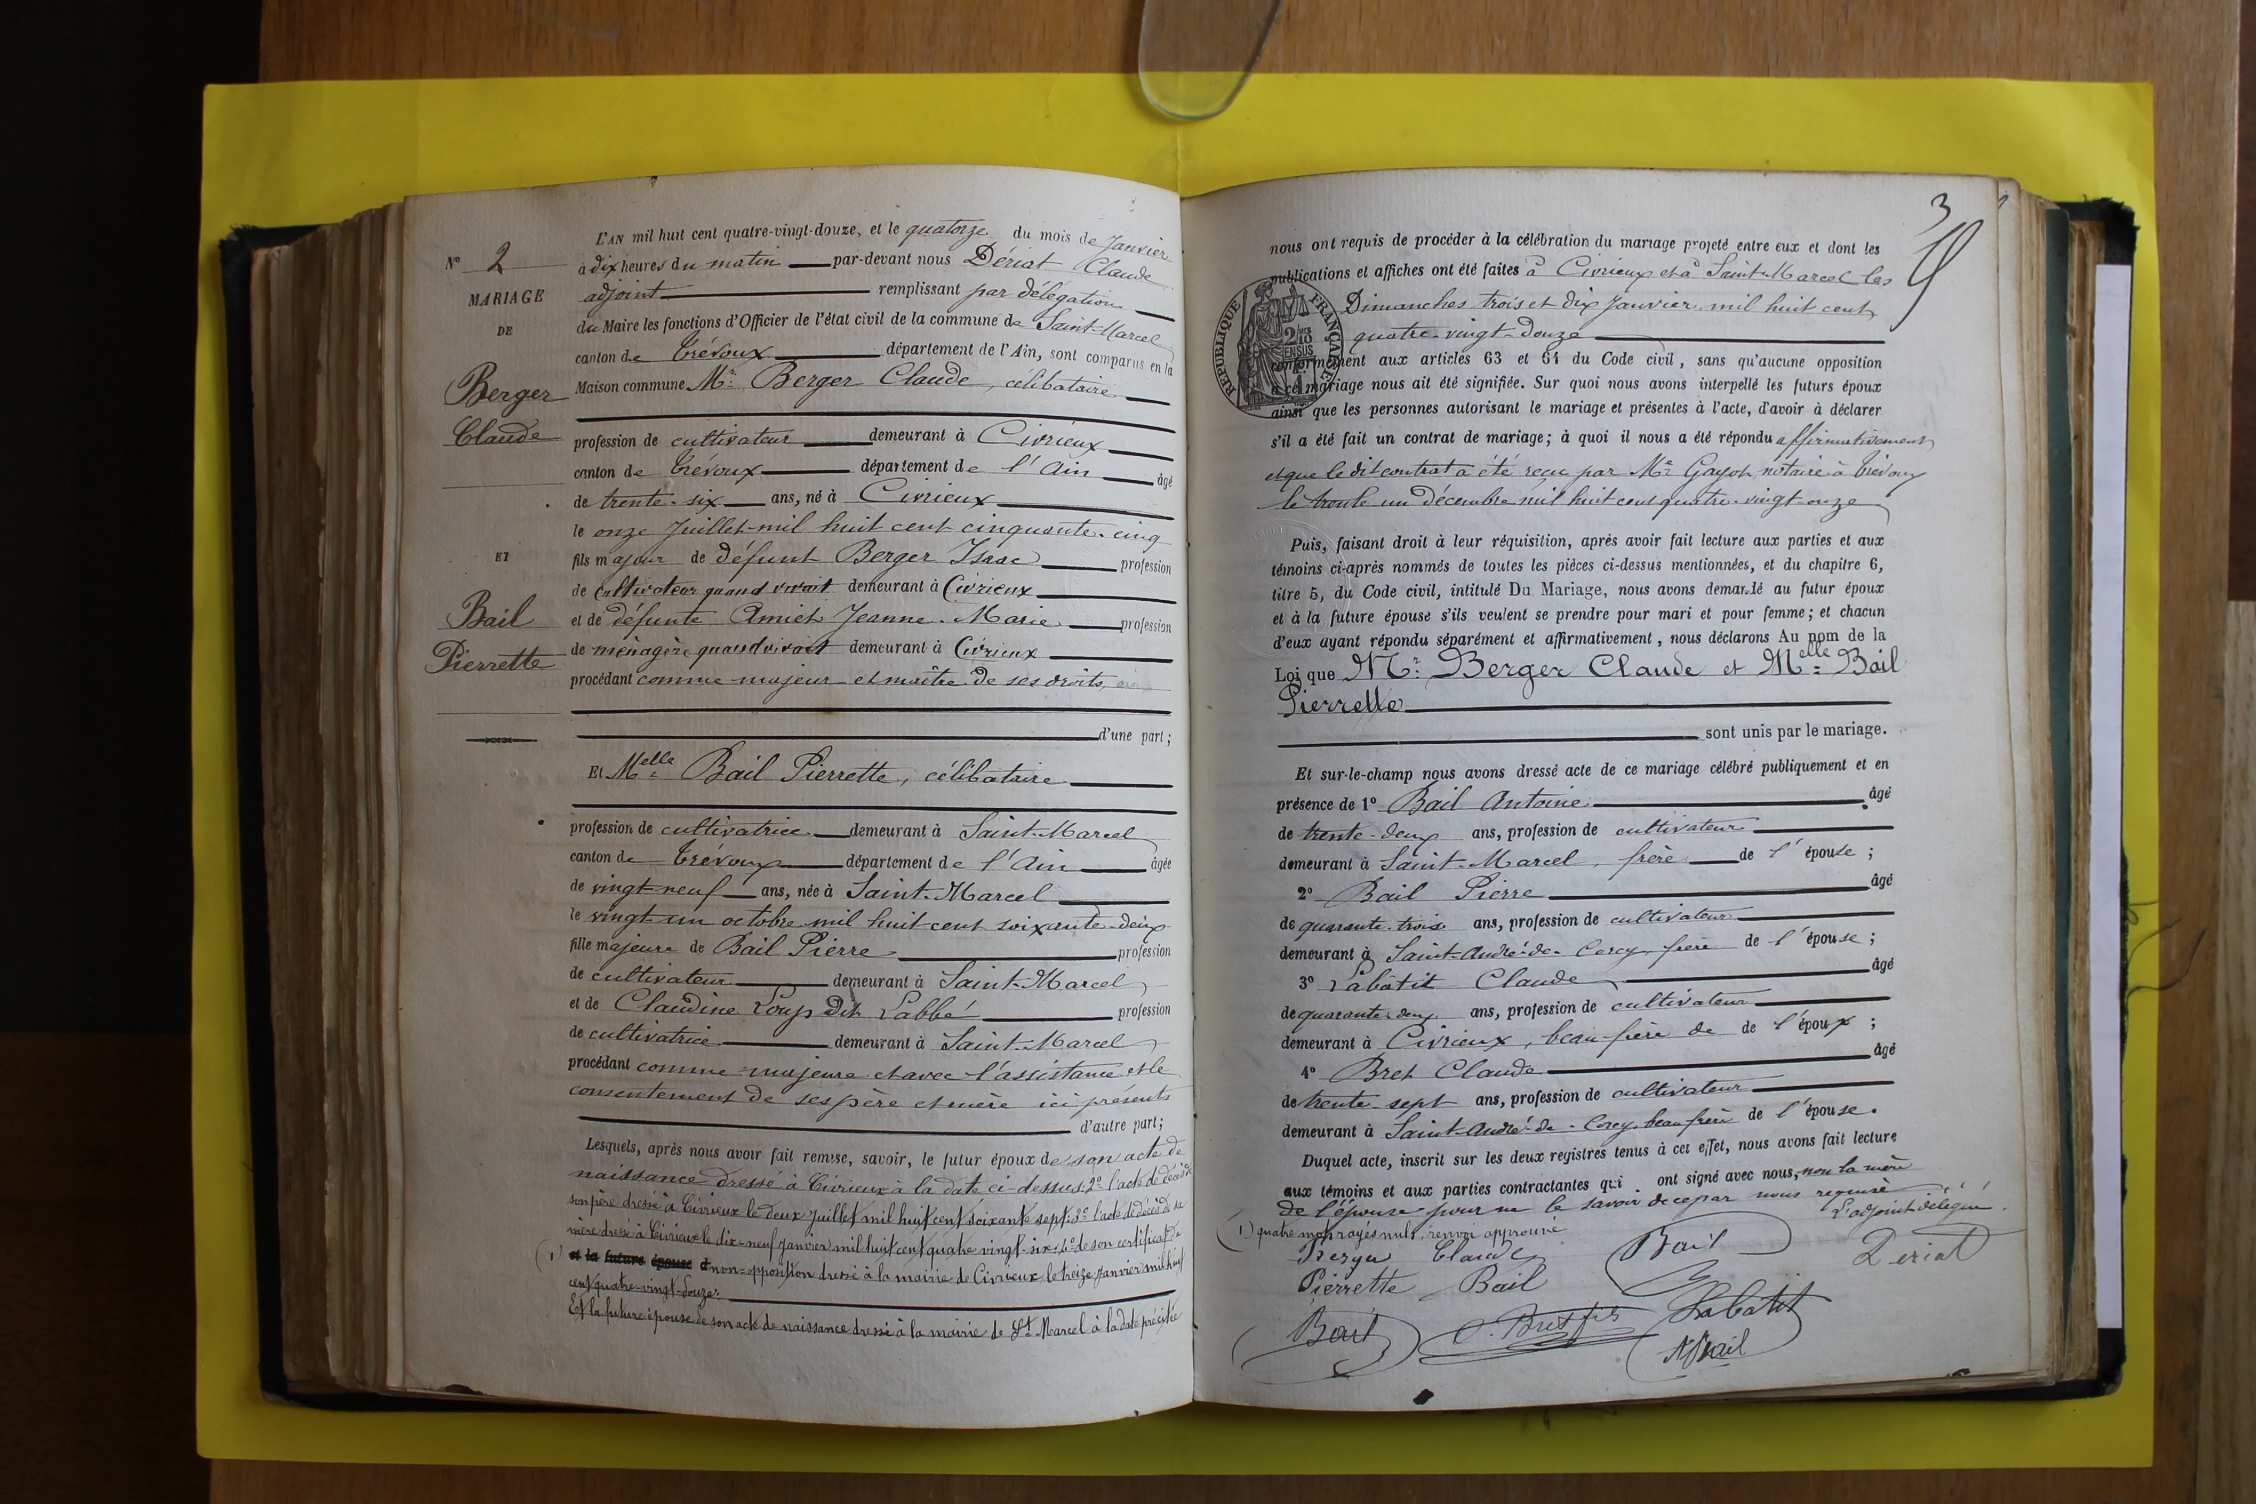 N° 2
MARIAGE
DE
Berger
Claude
ET
Bail
Pierrette
L'AN mil huit cent quatre-vingt-douze, et le quatorze du mois de Janvier
à dix heures du matin par-devant nous Dériat Claude
adjoint remplissant par délégation
du Maire les fonctions d'Officier de l'état civil de la commune de Saint-Marcel
canton de Trévoux département de l'Ain, sont comparus en la
Maison commune Mr. Berger Claude, célibataire
profession de cultivateur demeurant à Civrieux
canton de Trévoux département de l'Ain âgé
de trente-six ans, né à Civrieux
le onze Juillet mil huit cent cinquante-cinq
fils majeur de défunt Berger Isaac profession
de cultivateur quand vivait demeurant à Civrieux
et de défunte Amiet Jeanne-Marie profession
de ménagère quand vivait demeurant à Civrieux
procédant comme majeur et maître de ses droits
d'une part;
Et Melle Bail Pierrette, célibataire
profession de cultivatrice demeurant à Saint-Marcel
canton de Trévoux département de l'Ain âgée
de vingt-neuf ans, née à Saint-Marcel
le vingt-un octobre mil huit cent soixante-deux
fille majeure de Bail Pierre profession
de cultivateur demeurant à Saint-Marcel
et de Claudine Loup Dit Labbé profession
de cultivatrice demeurant à Saint-Marcel
procédant comme majeure et avec l'assistance et le
consentement de ses père et mère ici présents
d'autre part;
Lesquels, après nous avoir fait remise, savoir, le futur époux de son acte de
naissance dressé à Civrieux à la date ci-dessus; 2° l'acte de décès de
son père dressé à Civrieux le deux Juillet mil huit cent soixante sept; 3° l'acte de décès de sa
mère dressé à Civrieux le dix-neuf Janvier mil huit cent quatre vingt-six; 4° de son certificat de
(1) et la future épouse d non-opposition dressé à la mairie de Civrieux le treize Janvier mil huit
cent quatre-vingt-douze.
Et la future épouse de son acte de naissance dressé à la mairie de St Marcel à la date précitée
3
nous ont requis de procéder à la célébration du mariage projeté entre eux et dont les
publications et affiches ont été faites à Civrieux et à Saint-Marcel les
Dimanches trois et dix Janvier mil huit cent
quatre-vingt-douze
RÉPUBLIQUE FRANÇAISE
2/10
EN SUS
conformément aux articles 63 et 64 du Code civil, sans qu'aucune opposition
à ce mariage nous ait été signifiée. Sur quoi nous avons interpellé les futurs époux
ainsi que les personnes autorisant le mariage et présentes à l'acte, d'avoir à déclarer
s'il a été fait un contrat de mariage; à quoi il nous a été répondu affirmativement
et que le dit contrat a été reçu par Me Gayot, notaire à Trévoux
le trente un décembre mil huit cent quatre-vingt-onze
Puis, faisant droit à leur réquisition, après avoir fait lecture aux parties et aux
témoins ci-après nommés de toutes les pièces ci-dessus mentionnées, et du chapitre 6,
titre 5, du Code civil, intitulé Du Mariage, nous avons demandé au futur époux
et à la future épouse s'ils veulent se prendre pour mari et pour femme; et chacun
d'eux ayant répondu séparément et affirmativement, nous déclarons Au nom de la
Loi que Mr. Berger Claude et Melle Bail
Pierrette
sont unis par le mariage.
Et sur-le-champ nous avons dressé acte de ce mariage célébré publiquement et en
présence de 1° Bail Antoine âgé
de trente-deux ans, profession de cultivateur
demeurant à Saint-Marcel, frère de l'épouse;
2° Bail Pierre âgé
de quarante-trois ans, profession de cultivateur
demeurant à Saint-André-de-Corcy, frère de l'épouse;
3° Labâtit Claude âgé
de quarante-deux ans, profession de cultivateur
demeurant à Civrieux, beau-frère de de l'époux;
4° Bret Claude âgé
de trente-sept ans, profession de cultivateur
demeurant à Saint-André-de-Corcy, beau frère de l'épouse.
Duquel acte, inscrit sur les deux registres tenus à cet effet, nous avons fait lecture
aux témoins et aux parties contractantes qui ont signé avec nous, non la mère
de l'épouse pour ne le savoir de ce par nous requise
(1) quatre mots rayés nuls, renvoi approuvé L'adjoint délégué.
Berger Claude Bail Dériat
Pierrette Bail
Bail C. Bret fils Labâtit
A Bail